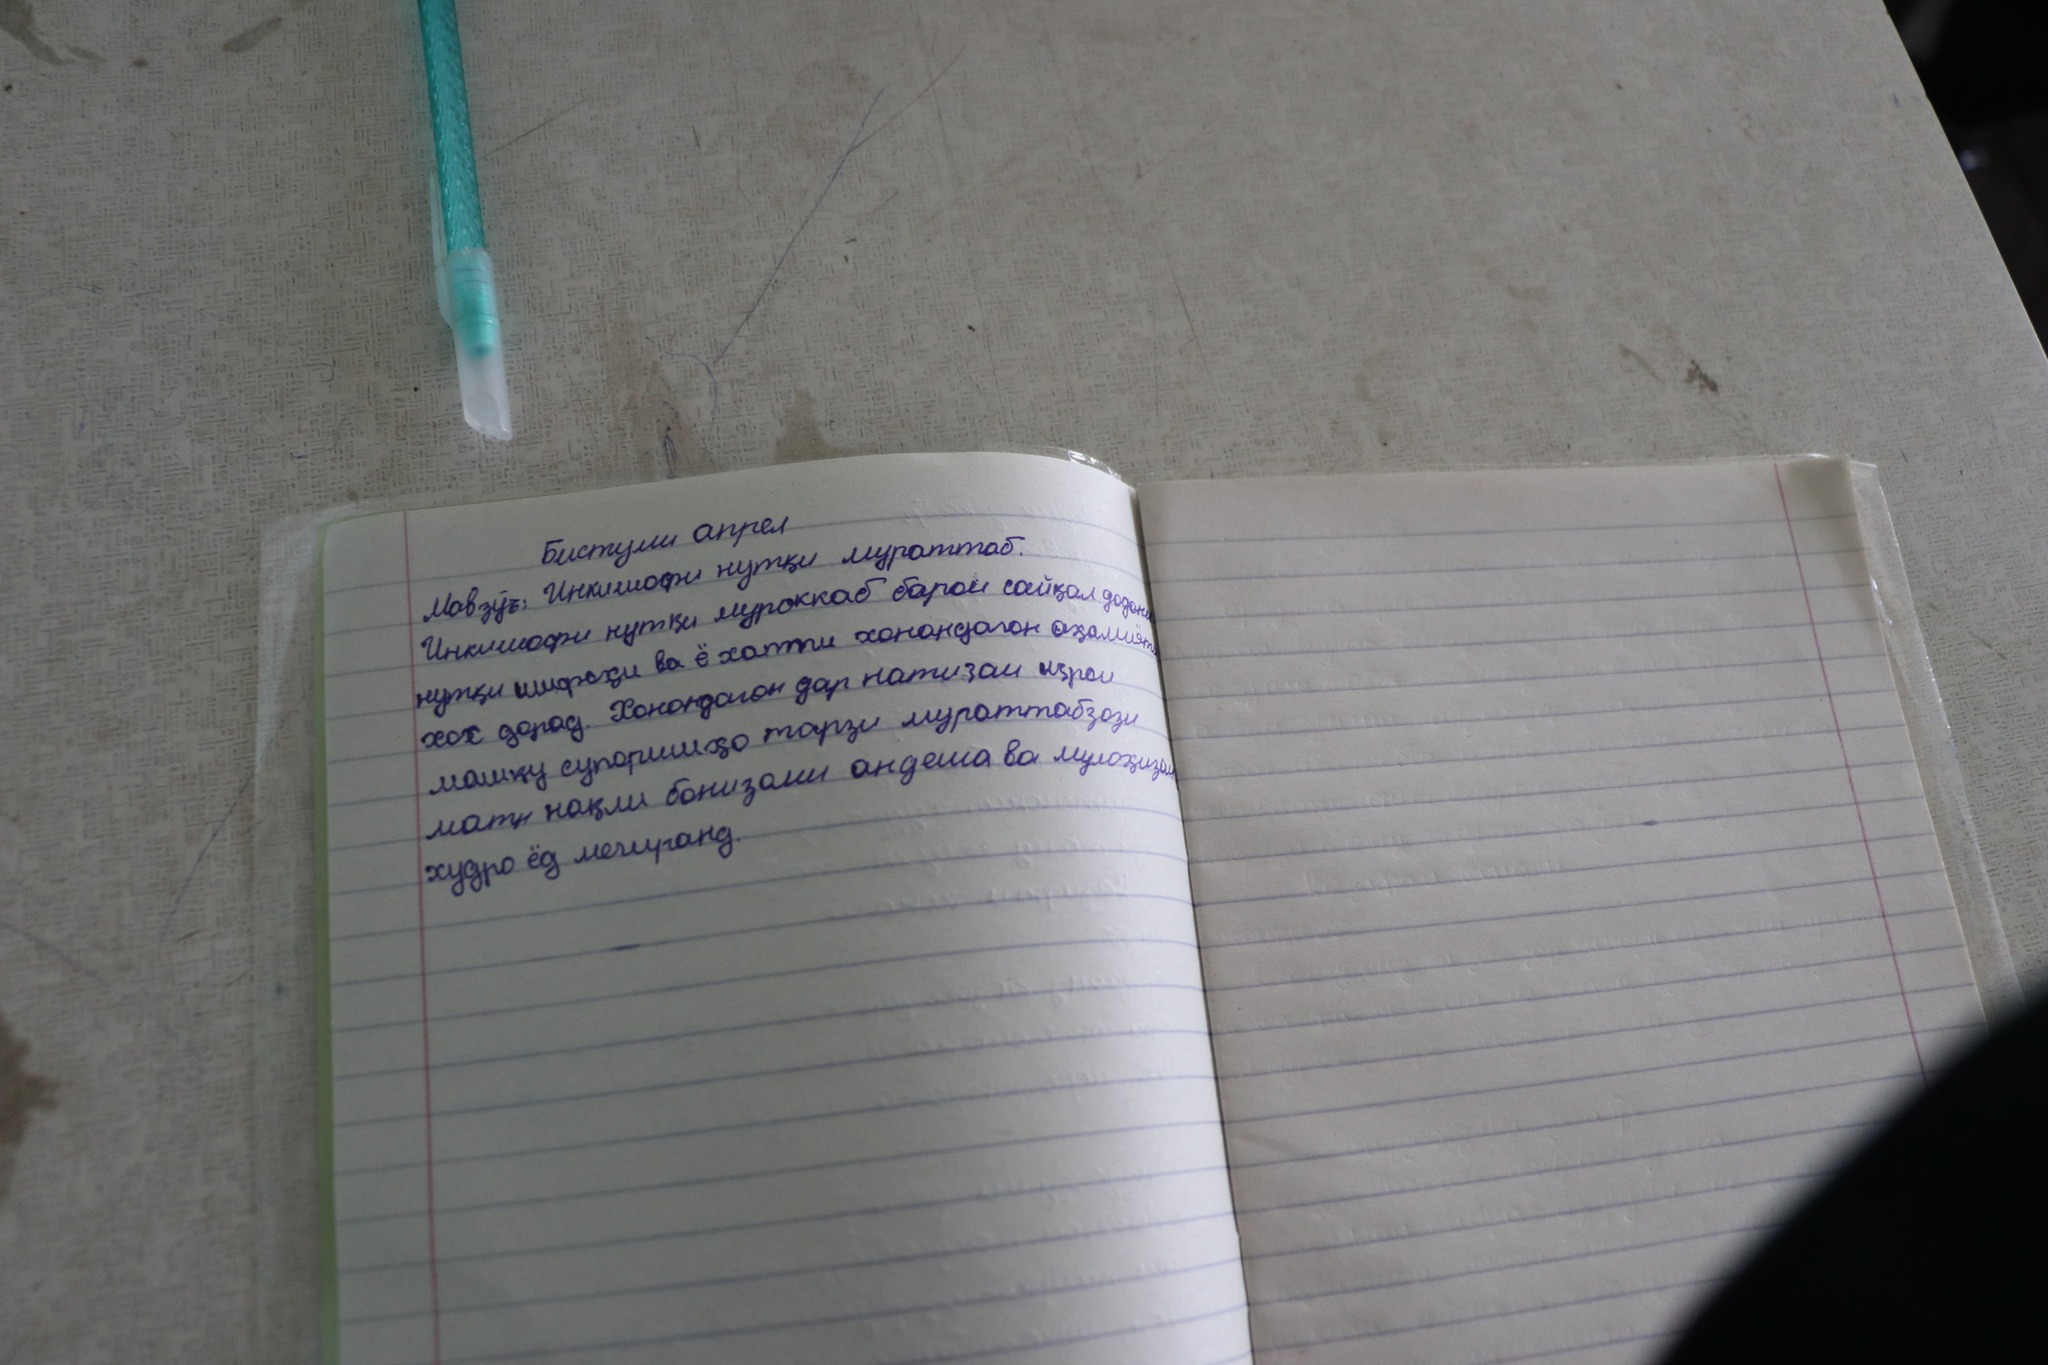 Бистуми апрел
Мавзӯъ: Инкишофи нутқи мураттаб.
Инкишофи нутқи мураккаб барои сайқал додани
нутқи шифоҳи ва ё хатти хонандагон аҳамияти
хох дорад. Хонандагон дар натиҷаи иҷрои
машқу супоришҳо тарзи мураттабзози
матн нақли бонизоми андеша ва мулоҳизаи
худро ёд мегиранд.